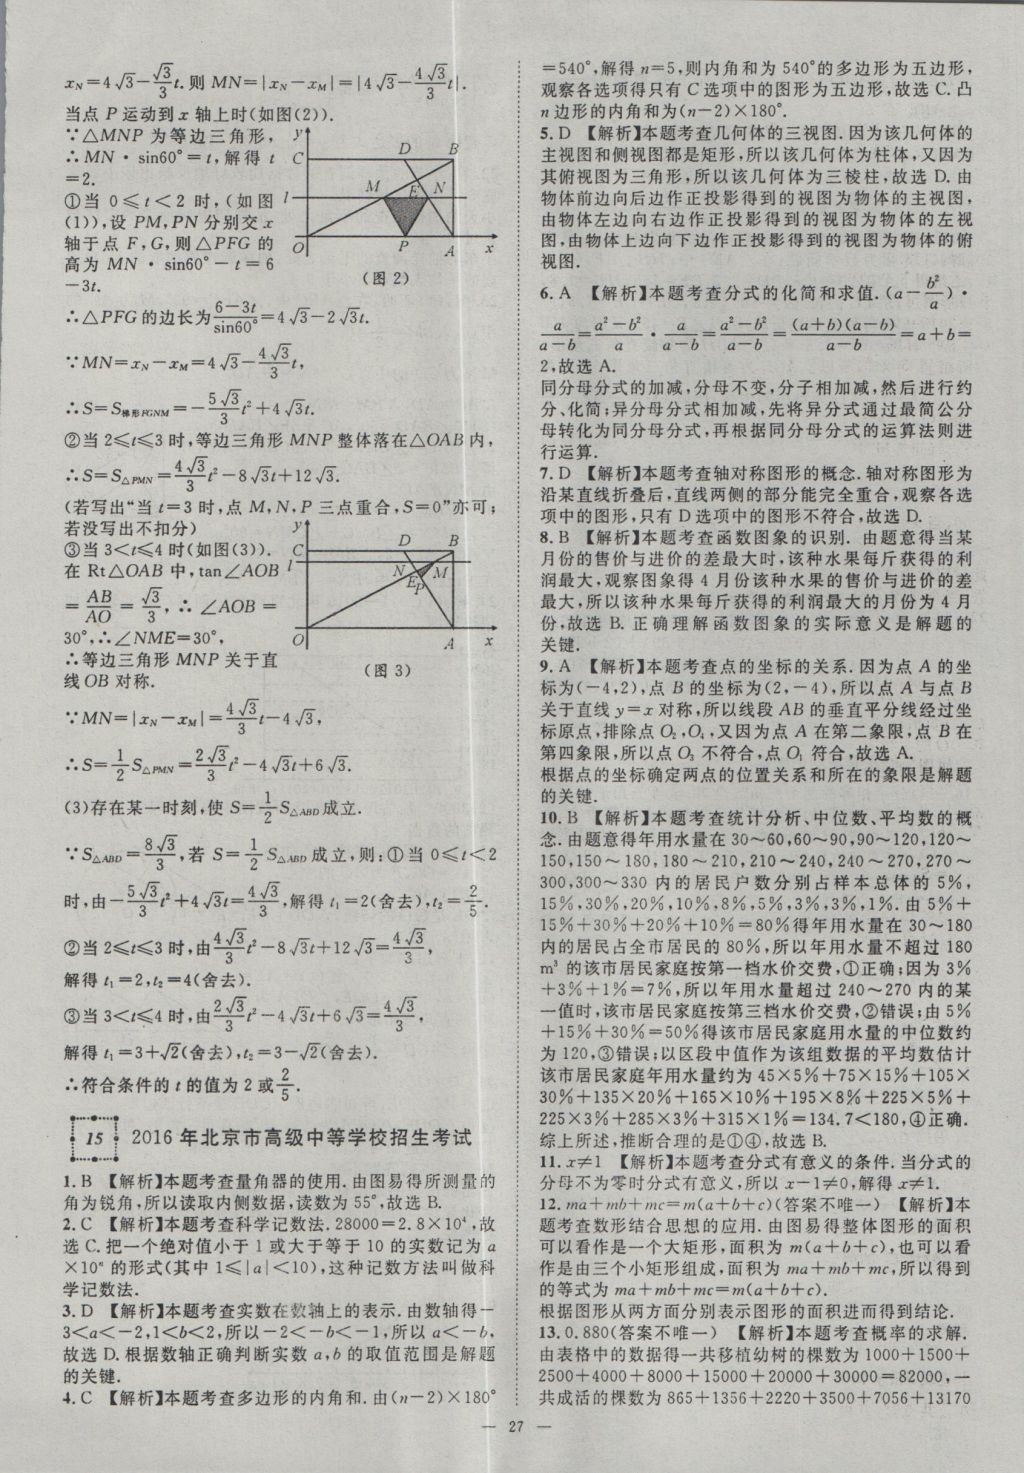 x_N=4√3-(√3/3)t.则 MN=|x_N-x_M|=|4√3-(4√3/3)t|.
当点 P 运动到 x 轴上时(如图(2)).
∵△MNP 为等边三角形,
∴MN·sin60°=t,解得 t
=2.
①当 0≤t<2 时,(如图
(1)),设 PM,PN 分别交 x
轴于点 F,G,则△PFG 的
高为 MN·sin60°-t=6
-3t.
y
C D B
l M E N
O P A x
(图 2)
∴△PFG 的边长为(6-3t)/sin60°=4√3-2√3t.
∵MN=x_N-x_M=4√3-(4√3/3)t,
∴S=S梯形FGNM=-(5√3/3)t²+4√3t.
②当 2≤t≤3 时,等边三角形 MNP 整体落在△OAB 内,
∴S=S△PMN=(4√3/3)t²-8√3t+12√3.
(若写出“当 t=3 时,点 M,N,P 三点重合,S=0”亦可;
若没写出不扣分)
③当 3<t≤4 时(如图(3)).
在 Rt△OAB 中,tan∠AOB
=AB/AO=√3/3,∴∠AOB=
30°,∴∠NME=30°,
∴等边三角形 MNP 关于直
线 OB 对称.
y
C D B
l N E M
P
O A x
(图 3)
∵MN=|x_N-x_M|=(4√3/3)t-4√3,
∴S=(1/2)S△PMN=(2√3/3)t²-4√3t+6√3.
(3)存在某一时刻,使 S=(1/2)S△ABD成立.
∵S△ABD=8√3/3,若 S=(1/2)S△ABD成立,则:①当 0≤t<2
时,由-(5√3/3)t²+4√3t=4√3/3,解得 t₁=2(舍去),t₂=2/5.
②当 2≤t≤3 时,由(4√3/3)t²-8√3t+12√3=4√3/3,
解得 t₁=2,t₂=4(舍去).
③当 3<t≤4 时,由(2√3/3)t²-4√3t+6√3=4√3/3,
解得 t₁=3+√2(舍去),t₂=3-√2(舍去).
∴符合条件的 t 的值为 2 或2/5.
15 2016 年北京市高级中等学校招生考试
1. B 【解析】本题考查量角器的使用.由图易得所测量的
角为锐角,所以读取内侧数据,读数为 55°,故选 B.
2. C 【解析】本题考查科学记数法.28000=2.8×10⁴,故
选 C.把一个绝对值小于 1 或大于等于 10 的实数记为 a
×10ⁿ 的形式(其中 1≤|a|<10),这种记数方法叫做科
学记数法.
3. D 【解析】本题考查实数在数轴上的表示.由数轴得-
3<a<-2,1<b<2,所以-2<-b<-1,所以 a<-b,
故选 D.根据数轴正确判断实数 a,b 的取值范围是解题
的关键.
4. C 【解析】本题考查多边形的内角和.由(n-2)×180°
=540°,解得 n=5,则内角和为 540°的多边形为五边形,
观察各选项得只有 C 选项中的图形为五边形,故选 C.凸
n 边形的内角和为(n-2)×180°.
5. D 【解析】本题考查几何体的三视图.因为该几何体的
主视图和侧视图都是矩形,所以该几何体为柱体,又因为
其俯视图为三角形,所以该几何体为三棱柱,故选 D.由
物体前边向后边作正投影得到的视图为物体的主视图,
由物体左边向右边作正投影得到的视图为物体的左视
图,由物体上边向下边作正投影得到的视图为物体的俯
视图.
6. A 【解析】本题考查分式的化简和求值.(a-b²/a)·
a/(a-b)=(a²-b²)/a·a/(a-b)=(a²-b²)/(a-b)=(a+b)(a-b)/(a-b)=a+b=
2,故选 A.
同分母分式的加减,分母不变,分子相加减,然后进行约
分、化简;异分母分式相加减,先将异分式通过最简公分
母转化为同分母分式,再根据同分母分式的运算法则进
行运算.
7. D 【解析】本题考查轴对称图形的概念.轴对称图形为
沿某直线折叠后,直线两侧的部分能完全重合,观察各选
项中的图形,只有 D 选项中的图形不符合,故选 D.
8. B 【解析】本题考查函数图象的识别. 由题意得当某
月份的售价与进价的差最大时,该种水果每斤获得的利
润最大,观察图象得 4 月份该种水果的售价与进价的差
最大,所以该种水果每斤获得的利润最大的月份为 4 月
份,故选 B. 正确理解函数图象的实际意义是解题的
关键.
9. A 【解析】本题考查点的坐标的关系.因为点 A 的坐
标为(-4,2),点 B 的坐标为(2,-4),所以点 A 与点 B
关于直线 y=x 对称,所以线段 AB 的垂直平分线经过坐
标原点,排除点 O₂,O₄,又因为点 A 在第二象限,点 B 在
第四象限,所以点 O₃ 不符合,点 O₁ 符合,故选 A.
根据点的坐标确定两点的位置关系和所在的象限是解题
的关键.
10. B 【解析】本题考查统计分析、中位数、平均数的概
念.由题意得年用水量在 30～60,60～90,90～120,120～
150,150～180,180～210,210～240,240～270,270～
300,300～330 内的居民户数分别占样本总体的 5%,
15%,30%,20%,10%,8%,5%,3%,3%,1%.由 5%+
15%+30%+20%+10%=80%得年用水量在 30～180
内的居民占全市居民的 80%,所以年用水量不超过 180
m³ 的该市居民家庭按第一档水价交费,①正确;因为 3%
+3%+1%=7%,所以年用水量超过 240～270 内的某
一值时,该市居民家庭按第三档水价交费,②错误;由 5%
+15%+30%=50%得该市居民家庭用水量的中位数约
为 120,③错误;以区段中值作为该组数据的平均数估计
该市居民家庭年用水量约为 45×5%+75×15%+105×
30%+135×20%+165×10%+195×8%+225×5%+
225×3%+285×3%+315×1%=134.7<180,④正确.
综上所述,推断合理的是①④,故选 B.
11. x≠1 【解析】本题考查分式有意义的条件.当分式的
分母不为零时分式有意义,所以 x-1≠0,解得 x≠1.
12. ma+mb+mc=m(a+b+c)(答案不唯一) 【解析】本
题考查数形结合思想的应用.由图易得整体图形的面积
可以看作是一个大矩形,面积为 m(a+b+c),也可以看
作是由三个小矩形组成,面积为 ma+mb+mc,所以得到
的等式为 ma+mb+mc=m(a+b+c).
根据图形从两方面分别表示图形的面积进而得到结论.
13. 0.880(答案不唯一) 【解析】本题考查概率的求解.
由表格中的数据得一共移植幼树的棵数为 1000+1500+
2500+4000+8000+15000+20000+30000=82000,一
共成活的棵数为 865+1356+2220+3500+7056+13170
— 27 —